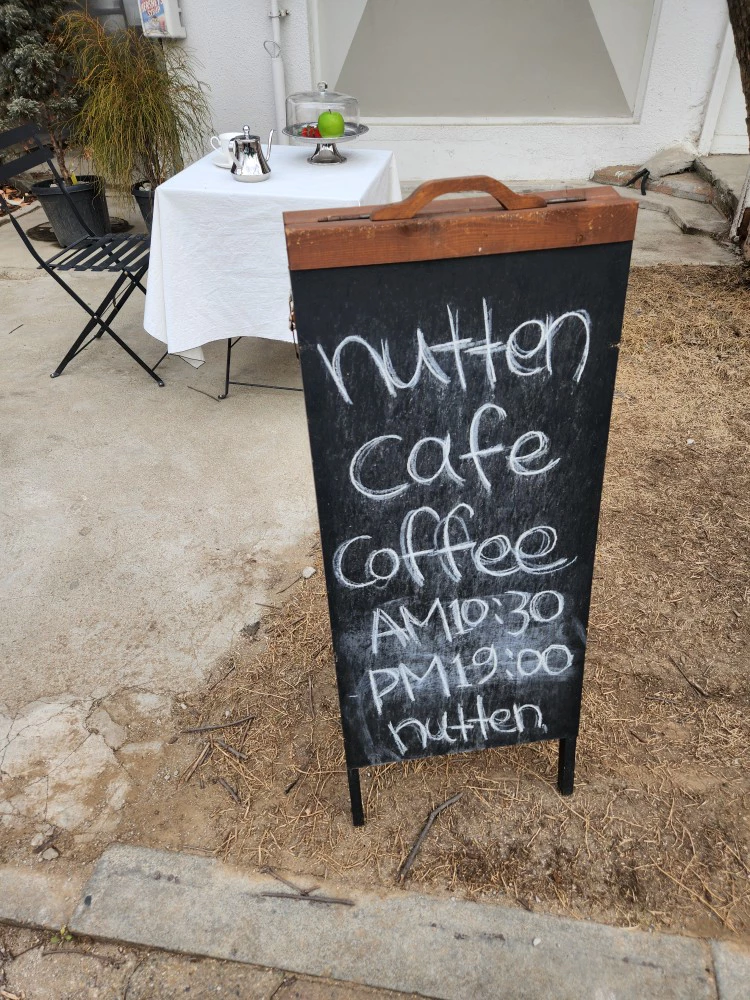 nutten
cafe
coffee
AM10:30
PM19:00
nutten.